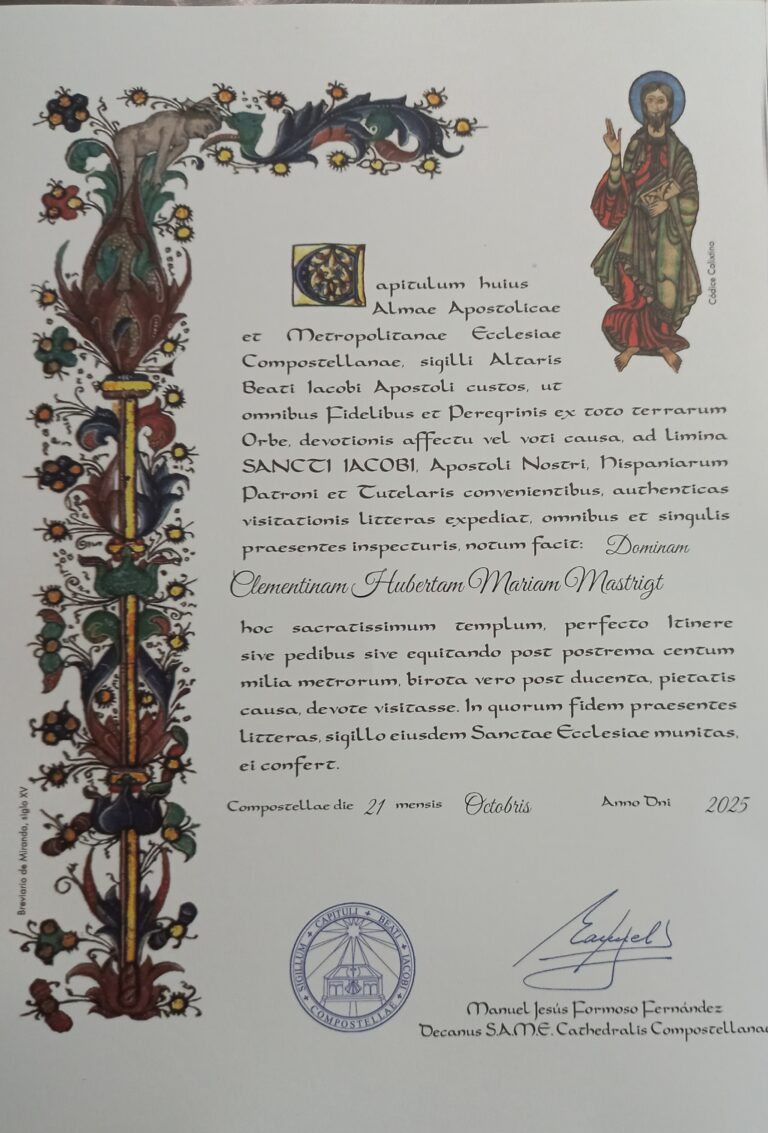 Códice Calixtino
Capitulum huius
Almae Apostolicae
et Metropolitanae Ecclesiae
Compostellanae, sigilli Altaris
Beati Iacobi Apostoli custos, ut
omnibus Fidelibus et Peregrinis ex toto terrarum
Orbe, devotionis affectu vel voti causa, ad limina
SANCTI IACOBI, Apostoli Nostri, Hispaniarum
Patroni et Tutelaris convenientibus, authenticas
visitationis litteras expediat, omnibus et singulis
praesentes inspecturis, notum facit: Dominam
Clementinam Hubertam Mariam Mastrigt
hoc sacratissimum templum, perfecto Itinere
sive pedibus sive equitando post postrema centum
milia metrorum, birota vero post ducenta, pietatis
causa, devote visitasse. In quorum fidem praesentes
litteras, sigillo eiusdem Sanctae Ecclesiae munitas,
ei confert.
Compostellae die 21 mensis Octobris Anno Dni 2025
Breviario de Miranda, siglo XV
SIGILLUM CAPITULI BEATI IACOBI
COMPOSTELLAE
Manuel Jesús Formoso Fernández
Decanus S.A.M.E. Cathedralis Compostellanae